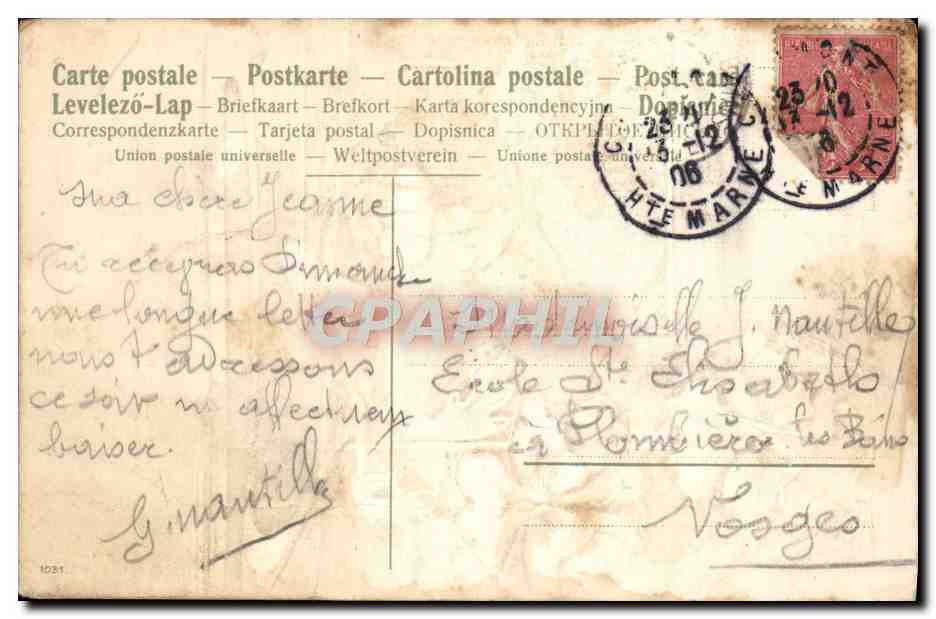 Carte postale — Postkarte — Cartolina postale — Post card
Levelező-Lap — Briefkaart — Brefkort — Karta korespondencyjna — Dopisnie
Correspondenzkarte — Tarjeta postal — Dopisnica — ОТКРЫТОЕ
Union postale universelle — Weltpostverein — Unione postale universale
23
3-12
06
HTE MARNE
23
12
6
E MARNE
ma chère Jeanne
Tu recevras Dimanche
une longue lettre
nous t'adressons
ce soir un affectueux
baiser.
G. Nautille
CPAPHIL
Mademoiselle J. Nautille
Ecole Ste Elisabeth
à Plombières les Bains
Vosges
1031